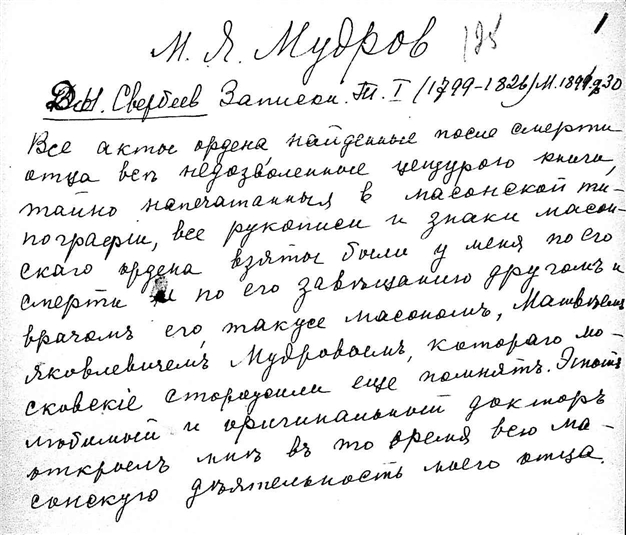 1
М. Я. Мудров 125
Д. Н. Свербеев Записки. Т. I (1799-1826) М. 1899. 230
Все акты ордена найденные после смерти
отца всѣ недозволенные цензурою книги,
тайно напечатанныя в масонской ти-
пографіи, все рукописи и знаки масон-
скаго ордена взяты были у меня по его
смерти и по его завѣщанию другомъ и
врачомъ его, также масономъ, Матвѣемъ
Яковлевичемъ Мудровымъ, котораго мо-
сковскіе старожили еще помнятъ. Этотъ
любимый и оригинальный докторъ
открылъ мнѣ въ то время всю ма-
сонскую дѣятельность моего отца.